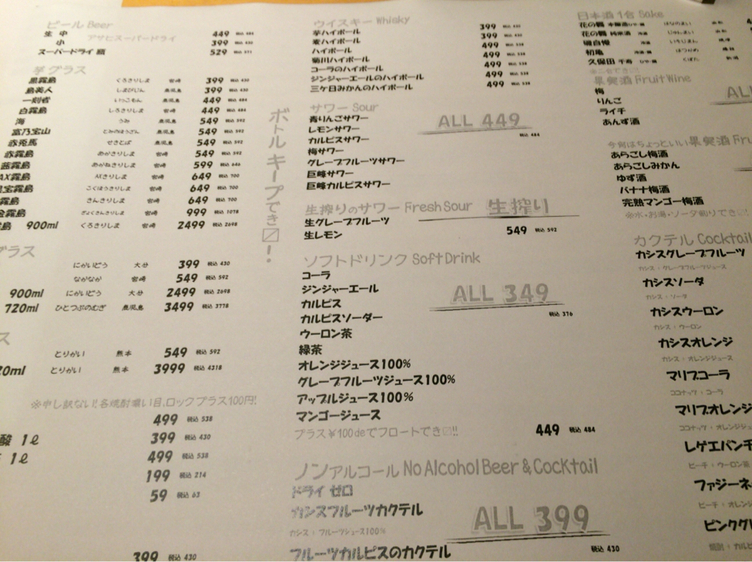 ビール Beer
生 中 アサヒスーパードライ 449 税込 484
小 399 税込 430
スーパードライ 瓶 529 税込 571
芋グラス
黒霧島 くろきりしま 宮崎 399 税込 430
島美人 しまびじん 鹿児島 399 税込 430
一刻者 いっこもん 鹿児島 449 税込 484
白霧島 しろきりしま 宮崎 449 税込 484
海 うみ 鹿児島 549 税込 592
富乃宝山 とみのほうざん 鹿児島 549 税込 592
赤兎馬 せきとば 鹿児島 549 税込 592
赤霧島 あかきりしま 宮崎 549 税込 592
茜霧島 あかねきりしま 宮崎 599 税込 646
宮崎 649 税込 700
宮崎 649 税込 700
宮崎 649 税込 700
宮崎 999 税込 1078
島 900ml くろきりしま 宮崎 2499 税込 2698
ボトルキープでき〼!
グラス
にかいどう 大分 399 税込 430
ながなが 宮崎 549 税込 592
900ml にかいどう 大分 2499 税込 2698
720ml ひとつぶのむぎ 鹿児島 3499 税込 3778
ス
とりかい 熊本 549 税込 592
20ml とりかい 熊本 3999 税込 4318
※申し訳ない!各焼酎濃い目、ロックプラス100円!
499 税込 538
酸 1ℓ 399 税込 430
1ℓ 499 税込 538
199 税込 214
59 税込 63
399 税込 430
ウイスキー Whisky
芋ハイボール 399 税込 430
麦ハイボール 399 税込 430
角ハイボール 499 税込 538
コーラのハイボール 499 税込 538
ジンジャーエールのハイボール 499 税込 538
三ケ日みかんのハイボール 499 税込 538
サワー Sour
ALL 449
税込 484
青りんごサワー
レモンサワー
カルピスサワー
梅サワー
グレープフルーツサワー
巨峰サワー
巨峰カルピスサワー
生搾りのサワー Fresh Sour 生搾り
生グレープフルーツ
生レモン 549 税込 592
ソフトドリンク Soft Drink
ALL 349
税込 376
コーラ
ジンジャーエール
カルピス
カルピスソーダー
ウーロン茶
緑茶
オレンジジュース100%
グレープフルーツジュース100%
アップルジュース100%
マンゴージュース
プラス¥100でフロートでき〼!! 449 税込 484
ノンアルコール No Alcohol Beer & Cocktail
ドライ ゼロ
カシスフルーツカクテル
カシス・フルーツジュース100%
ALL 399
フルーツカルピスのカクテル 税込 430
日本酒 1合 Sake
花の舞 本醸造
花の舞 純米酒
初亀
久保田 千寿
果実酒 Fruit Wine
梅
りんご
ライチ
あんず酒
今宵はちょっといい果実酒 Fru
あらごし梅酒
あらごしみかん
ゆず酒
バナナ梅酒
完熟マンゴー梅酒
カクテル Cocktail
カシスグレープフルーツ
カシス・グレープフルーツジュース
カシスソーダ
カシス・ソーダ
カシスウーロン
カシス・ウーロン
カシスオレンジ
カシス・オレンジジュース
マリブコーラ
ココナッツ・コーラ
マリブオレンジ
ココナッツ・オレンジジュ
レゲエパンチ
ピーチ・ウーロン茶
ファジーネ
ピーチ・オレン
ピンクグ